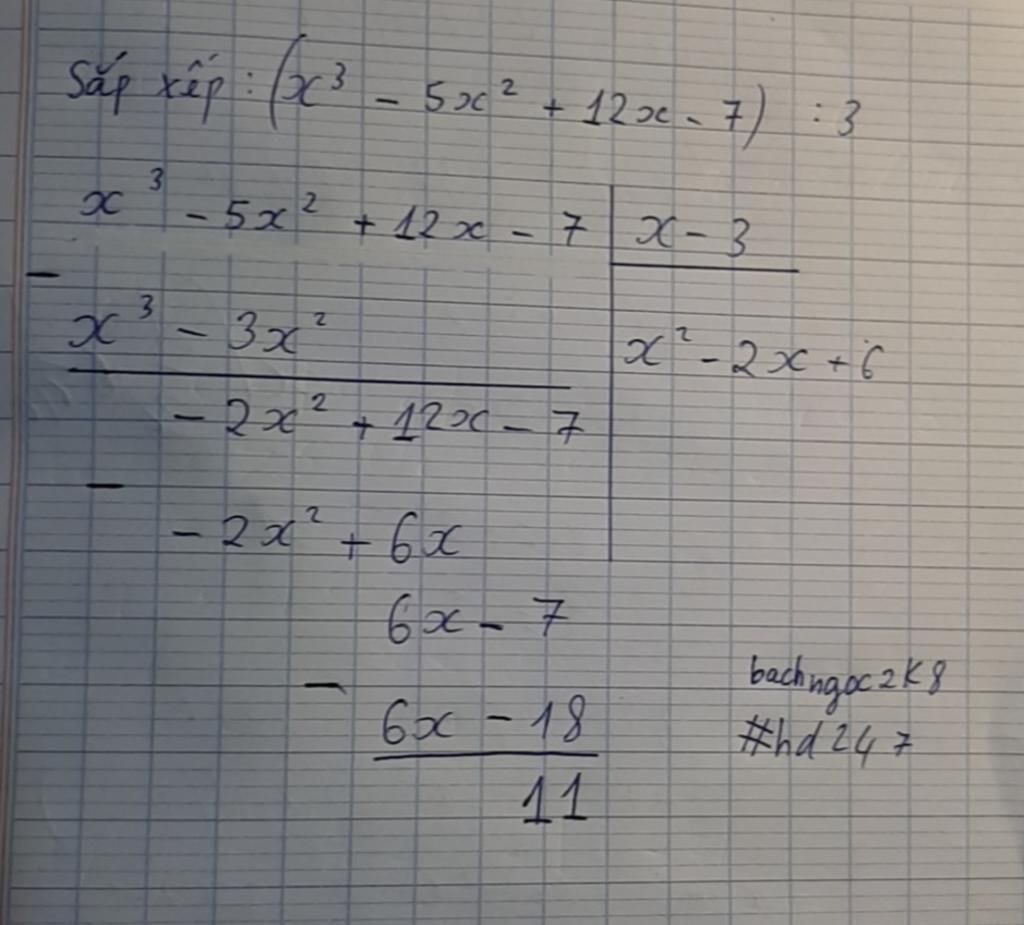 Sắp xếp: (x³ - 5x² + 12x - 7) : 3
x³ - 5x² + 12x - 7 | x - 3
-
x³ - 3x² | x² - 2x + 6
- 2x² + 12x - 7
-
- 2x² + 6x
6x - 7
-
6x - 18
11
bachngoc2k8
#hd247